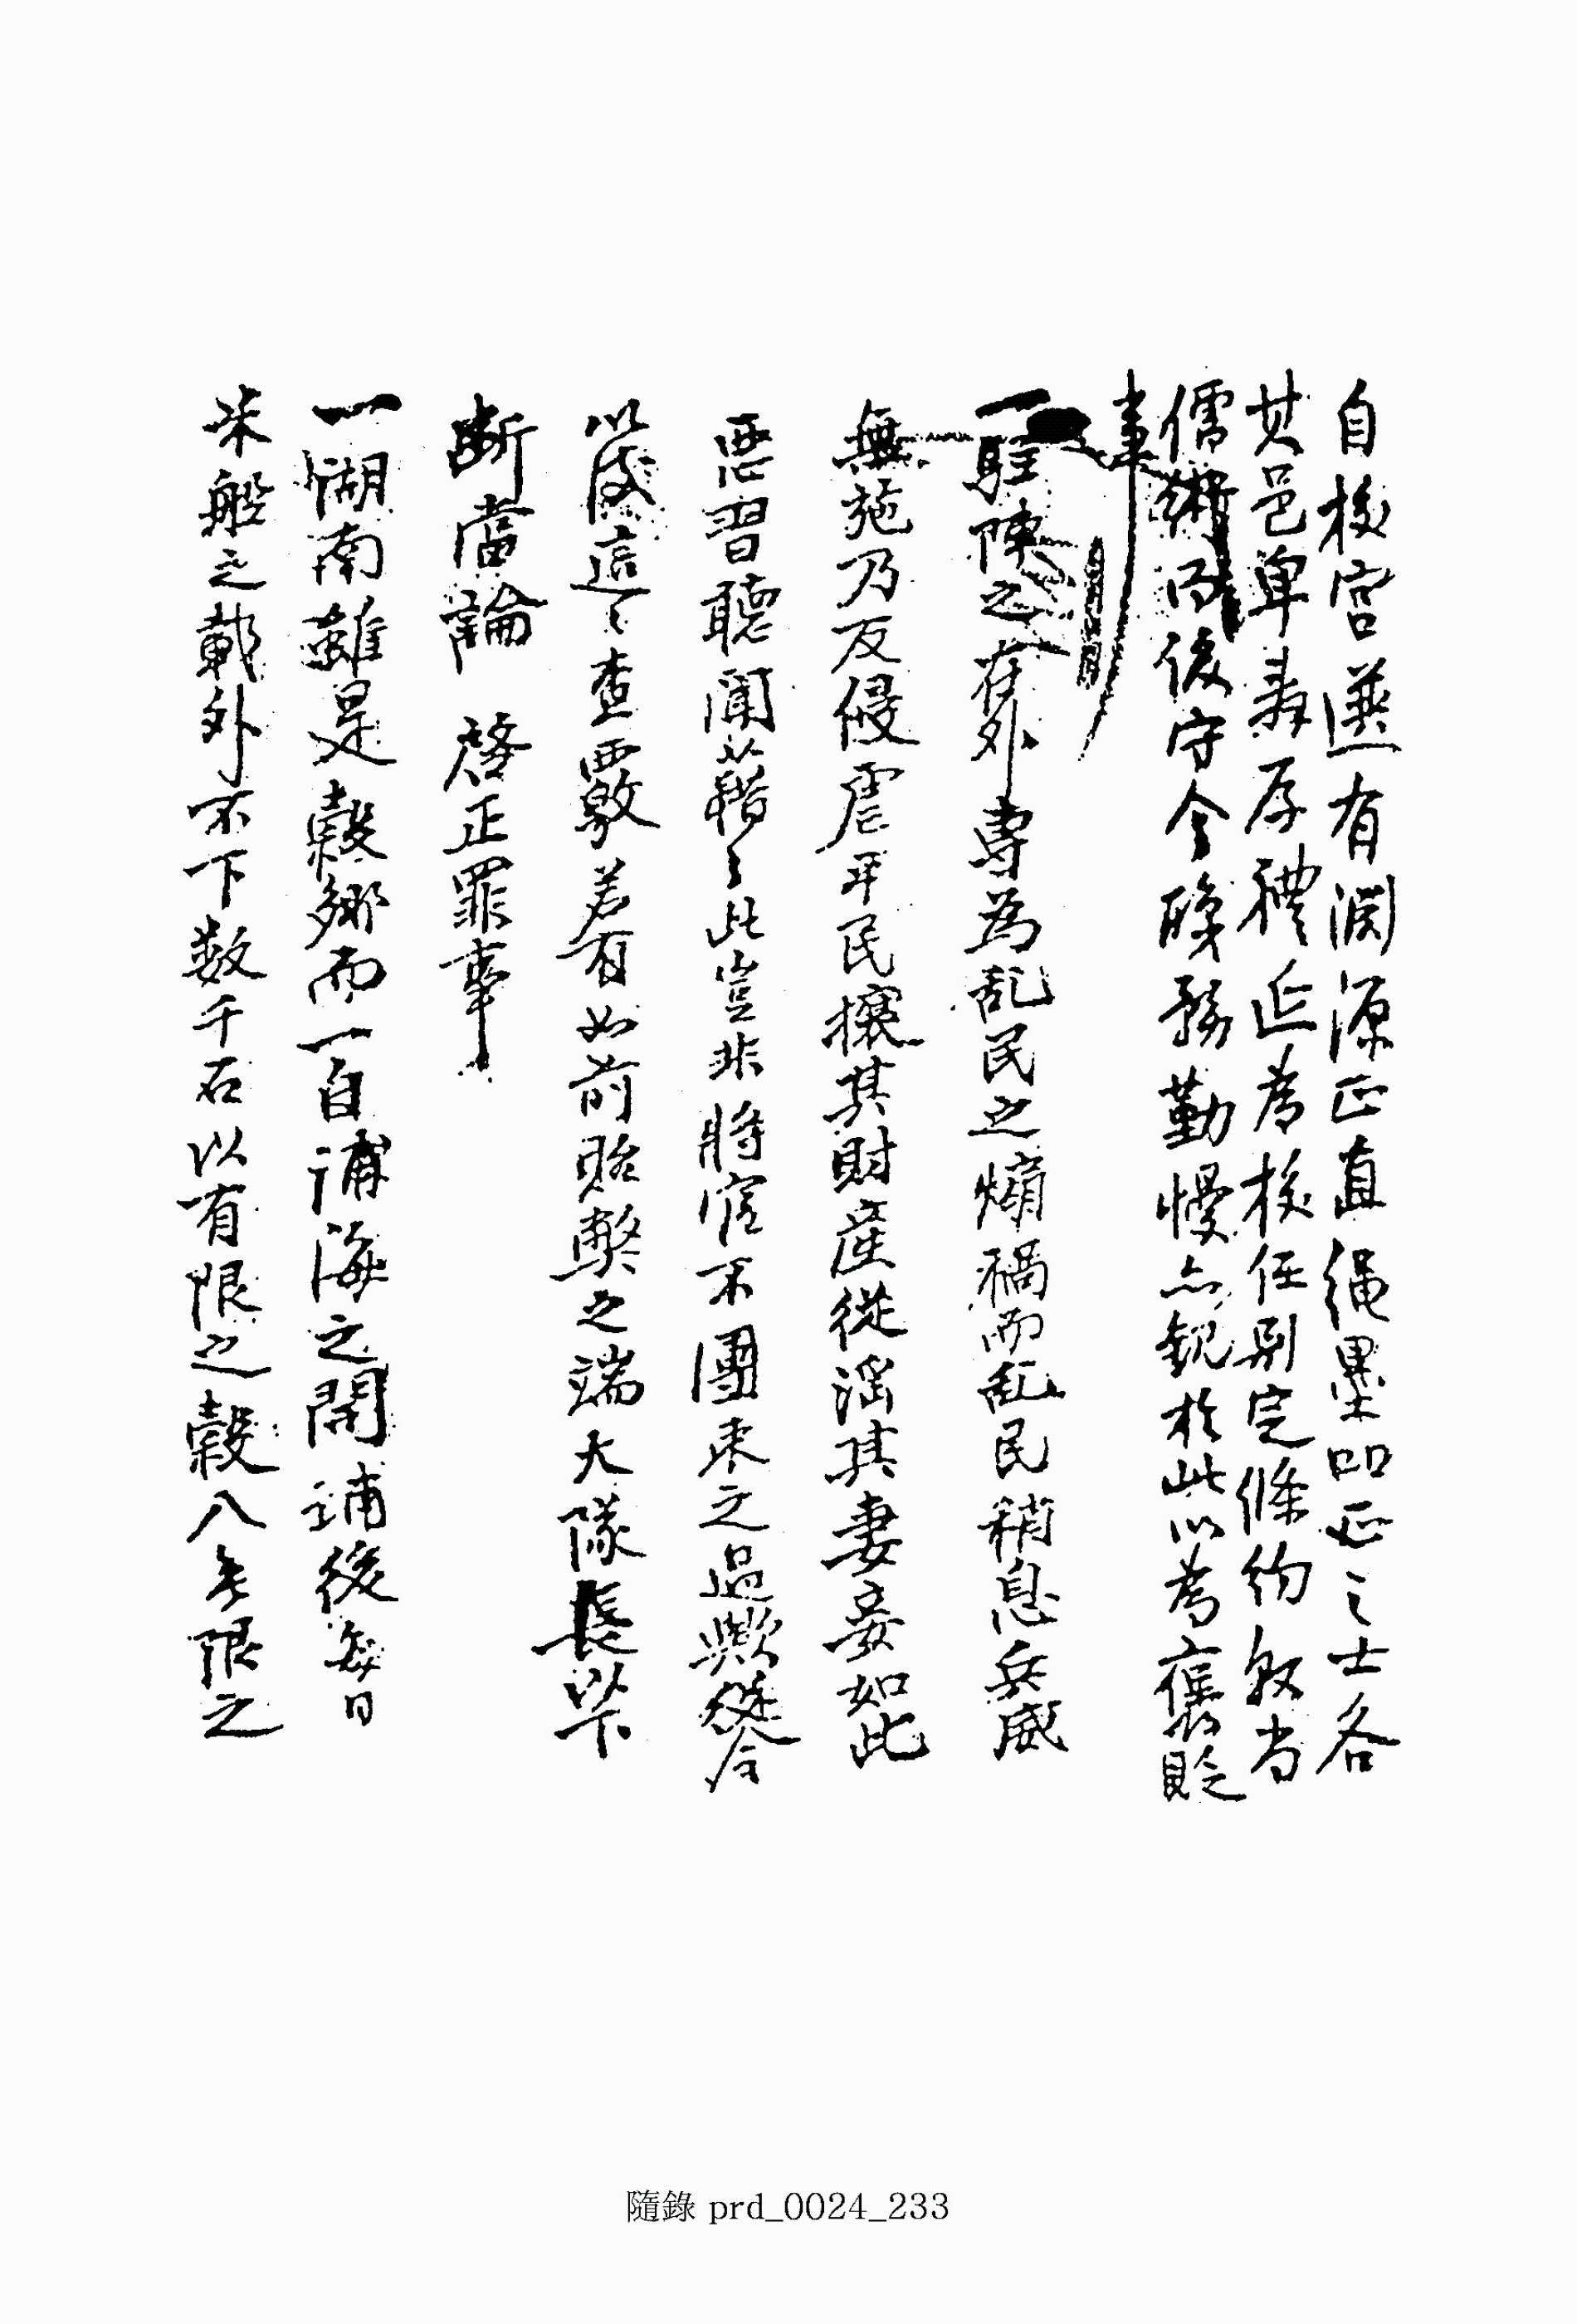 自校宮選有淵源正直繩墨叩正之士各
其邑卑辭厚禮延爲校任別定條約教官
儒術而後守令殘務勤慢亦觀於此以爲褒貶
事
一駐陳之在外專爲亂民之煽禍而乱民稍息兵威
無施乃反侵虐平民攘其財産從淫其妻妾如此
悪習聽聞藉〻此豈非將官不團束之過歟從今
以後這〻查覈若有如前貽弊之端大隊長以下
断當論 啓正罪事
一湖南雖是穀鄉而一自浦海之開浦後每日
米船之載外不下数千石以有限之穀入無限之
隨錄 prd_0024_233